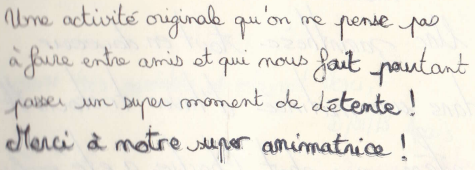 Une activité originale qu'on ne pense pas
à faire entre amis et qui nous fait pourtant
passer un super moment de détente !
Merci à notre super animatrice !